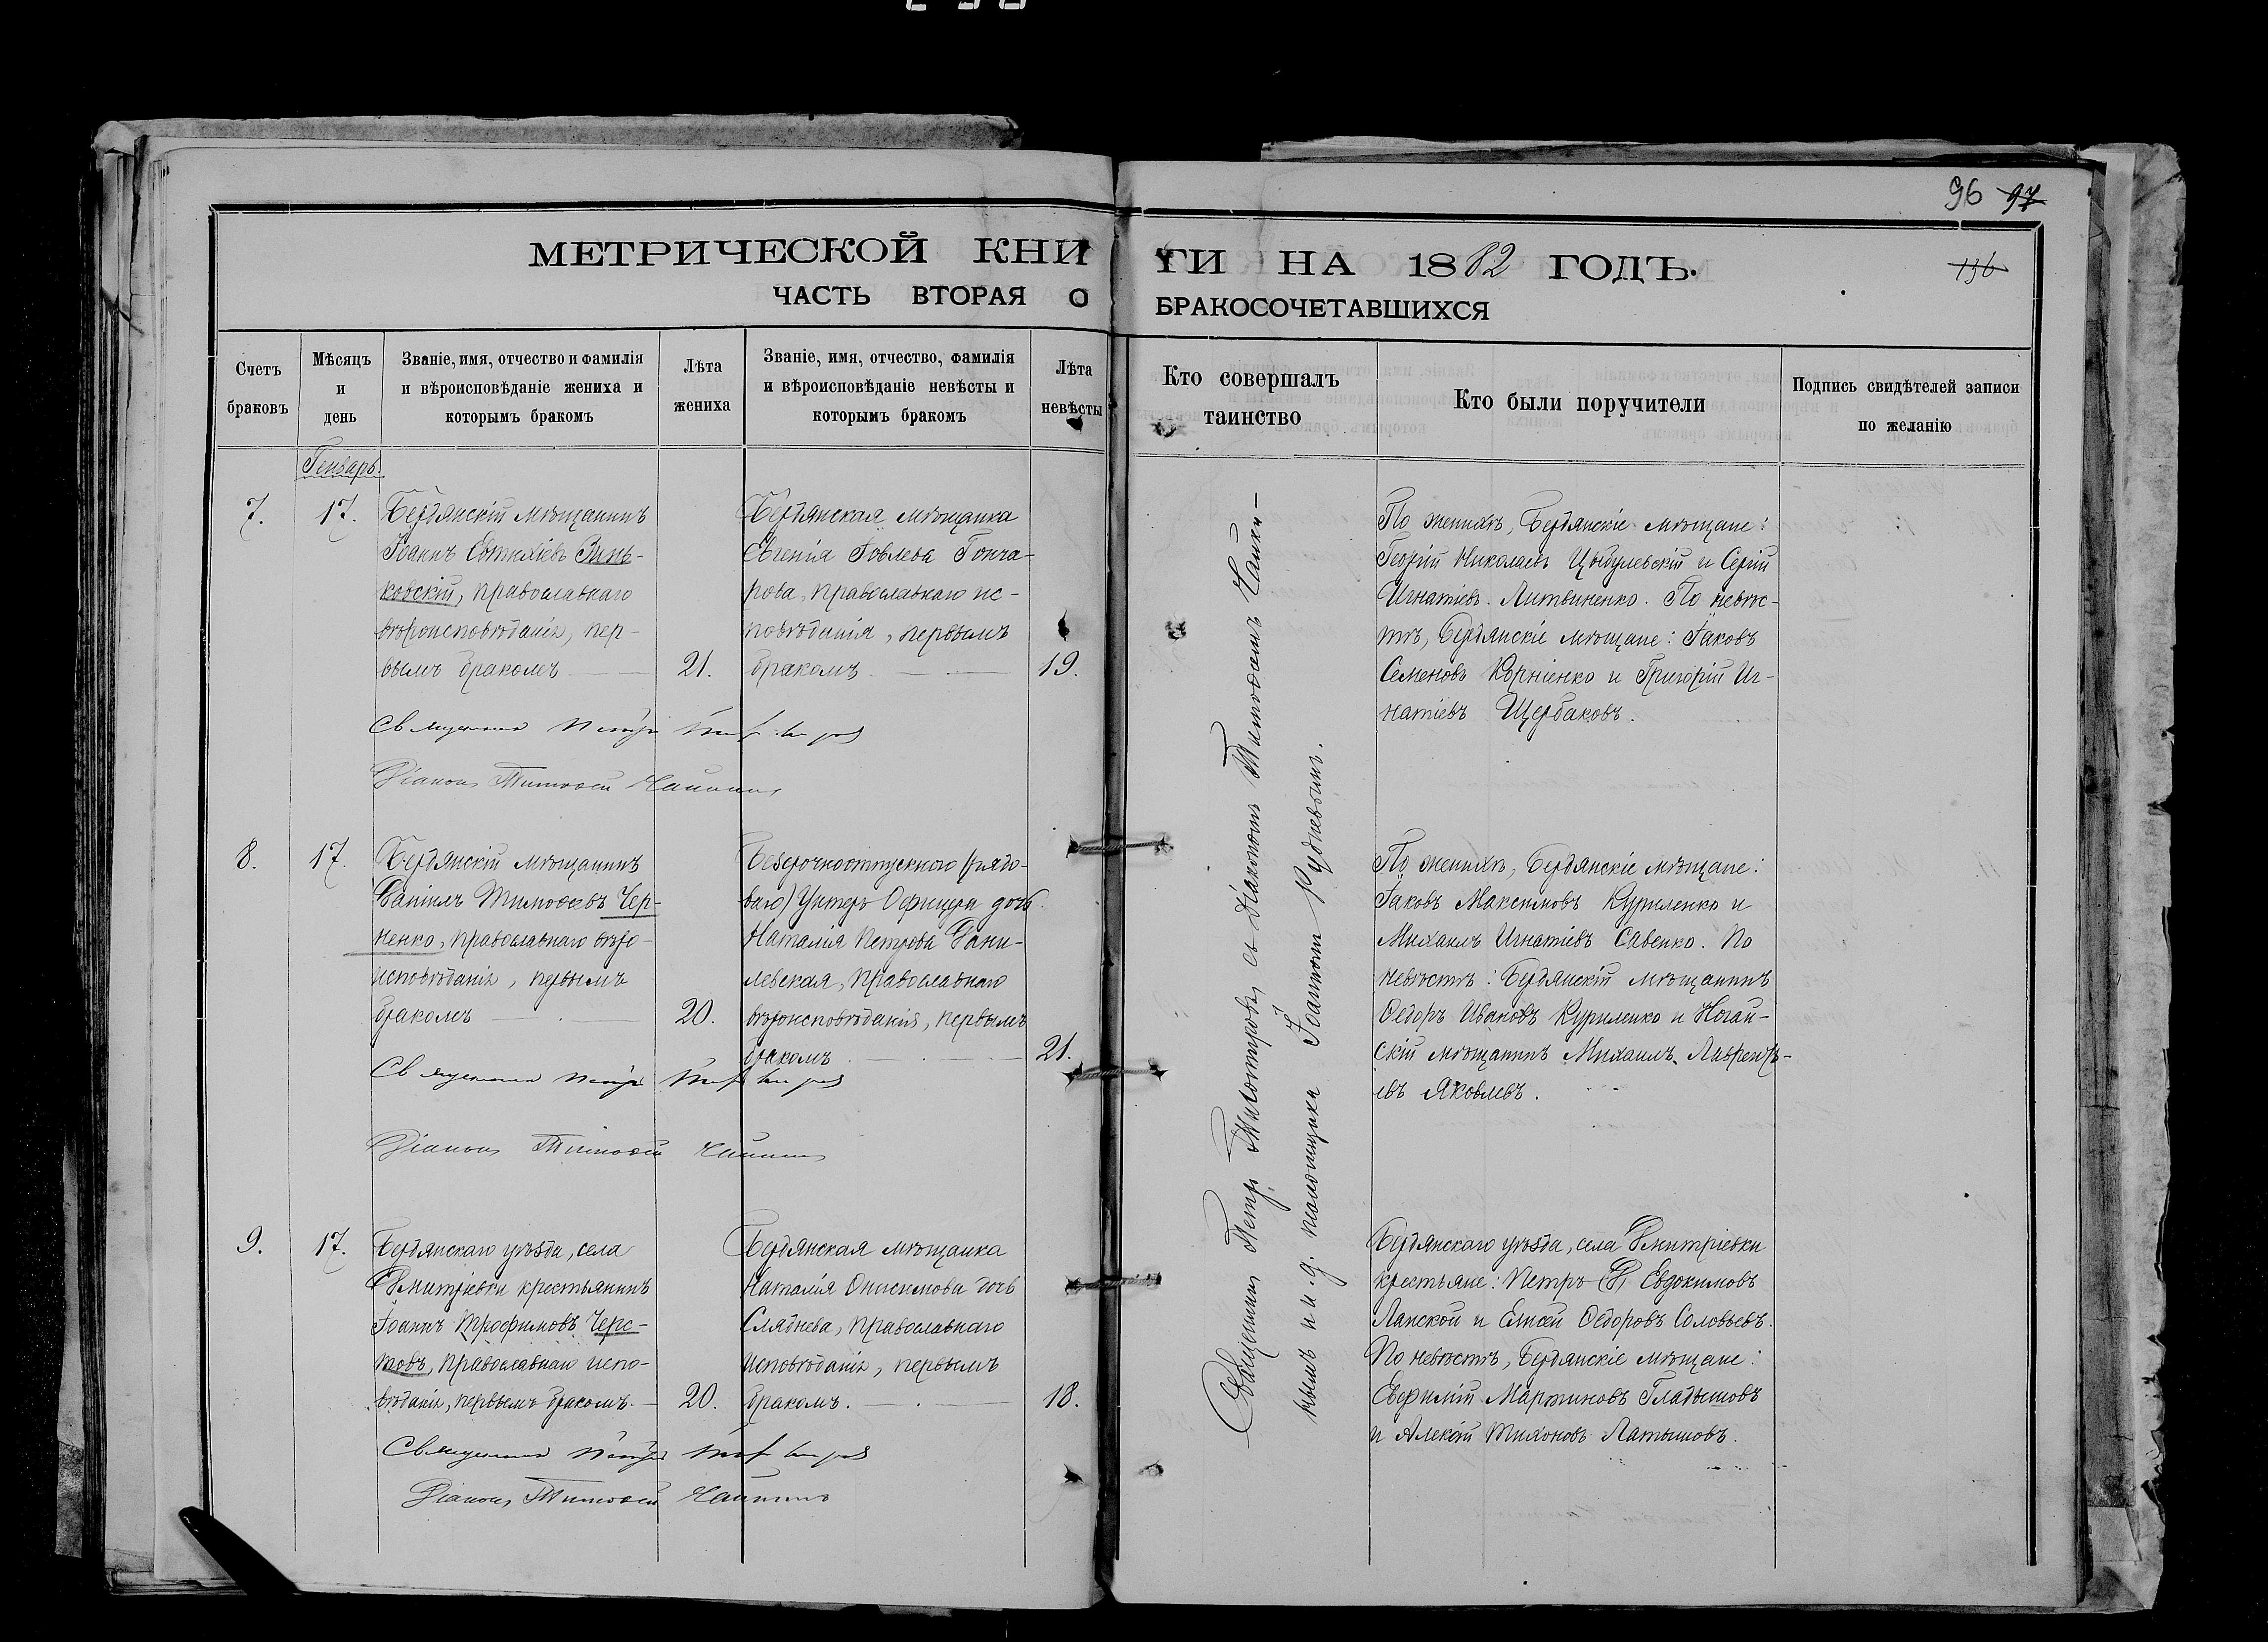 96 97
136
МЕТРИЧЕСКОЙ КНИГИ НА 1882 ГОДЪ.
ЧАСТЬ ВТОРАЯ О БРАКОСОЧЕТАВШИХСЯ
Счетъ браковъ
Мѣсяцъ и день
Званіе, имя, отчество и фамилія
и вѣроисповѣданіе жениха и
которымъ бракомъ
Лѣта жениха
Званіе, имя, отчество, фамилія
и вѣроисповѣданіе невѣсты и
которымъ бракомъ
Лѣта невѣсты
Кто совершалъ
таинство
Кто были поручители
Подпись свидѣтелей записи
по желанію
Генварь.
7. 17.
Бердянскій мѣщанинъ
Іоаннъ Евтихіевъ Зинь-
ковскій, православнаго
вѣроисповѣданія, пер-
вымъ бракомъ 21.
Бердянская мѣщанка
Евгенія Іовлева Гонча-
рова, православнаго ис-
повѣданія, первымъ
бракомъ 19.
По женихѣ, Бердянскіе мѣщане:
Георгій Николаевъ Цыбулевскій и Сергій
Игнатіевъ Литвиненко. По невѣс-
тѣ, Бердянскіе мѣщане: Іаковъ
Семеновъ Корніенко и Григорій Иг-
натіевъ Щербаковъ.
Священникъ Петръ
Діаконъ Тимоѳей Чайкинъ
8. 17.
Бердянскій мѣщанинъ
Даніилъ Тимоѳеевъ Чер-
ненко, православнаго вѣро-
исповѣданія, первымъ
бракомъ 20.
Безсрочноотпускного (рядо-
ваго) Унтеръ Офицера дочь
Наталія Петрова Дани-
левская, православнаго
вѣроисповѣданія, первымъ
бракомъ 21.
По женихѣ, Бердянскіе мѣщане:
Іаковъ Максимовъ Куриленко и
Михаилъ Игнатіевъ Савенко. По
невѣстѣ: Бердянскій мѣщанинъ
Ѳедоръ Ивановъ Куриленко и Ногай-
скій мѣщанинъ Михаилъ Лаврентьевъ
Яковлевъ.
Священникъ Петръ
Діаконъ Тимоѳей Чайкинъ
9. 17.
Бердянскаго уѣзда, села
Дмитріевки крестьянинъ
Іоаннъ Трофимовъ Черс-
товъ, православнаго испо-
вѣданія, первымъ бракомъ. 20.
Бердянская мѣщанка
Наталія Онисимова дочь
Сляднева, православнаго
исповѣданія, первымъ
бракомъ. 18.
Бердянскаго уѣзда, села Дмитріевки
крестьяне: Петръ Евдокимовъ
Ланской и Елисей Ѳедоровъ Соловьевъ.
По невѣстѣ, Бердянскіе мѣщане:
Евфимій Мартиновъ Гладышовъ
и Алексій Тихоновъ Латышовъ.
Священникъ Петръ
Діаконъ Тимоѳей Чайкинъ
Священникъ Петръ съ діакономъ Тимоѳеемъ Чайки-
нымъ и и. д. псаломщика Іоанномъ Рудневымъ.